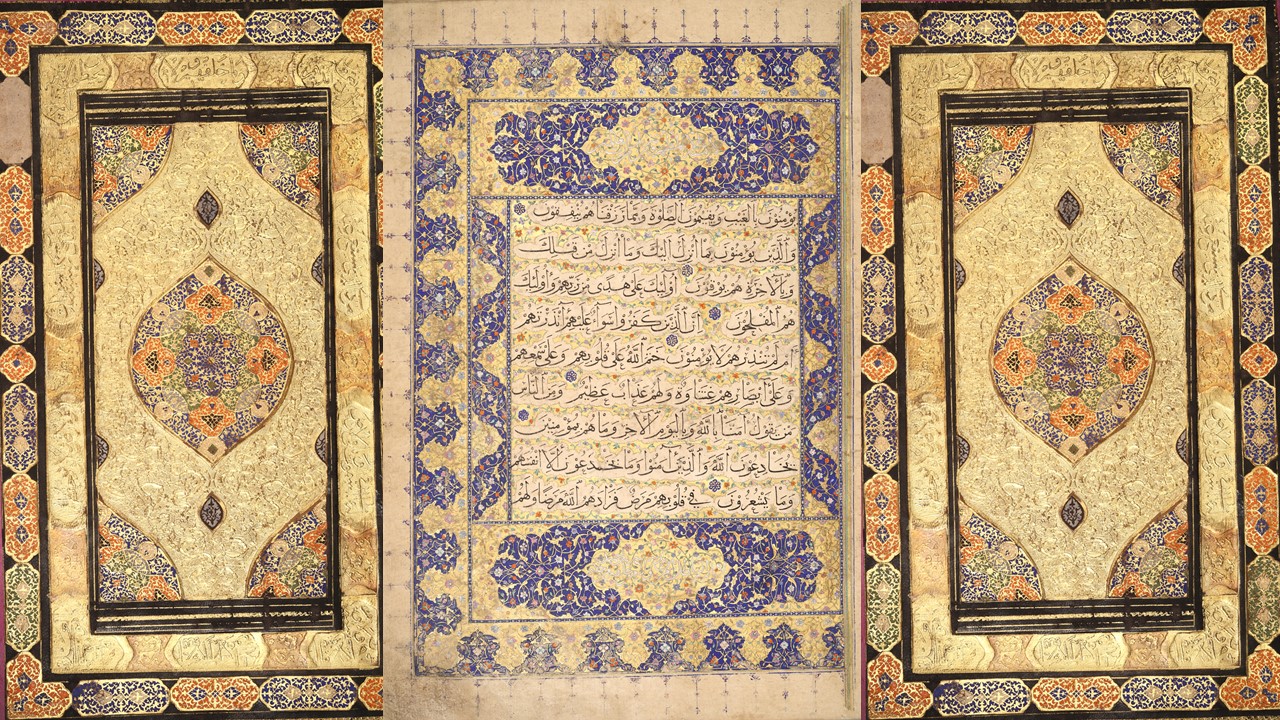 يُؤْمِنُونَ بِالْغَيْبِ وَيُقِيمُونَ الصَّلٰوةَ وَمِمَّا رَزَقْنَاهُمْ يُنْفِقُونَ
وَالَّذِينَ يُؤْمِنُونَ بِمَا أُنْزِلَ إِلَيْكَ وَمَا أُنْزِلَ مِنْ قَبْلِكَ
وَبِالْآخِرَةِ هُمْ يُوقِنُونَ أُولٰئِكَ عَلَىٰ هُدًى مِنْ رَبِّهِمْ وَأُولٰئِكَ
هُمُ الْمُفْلِحُونَ إِنَّ الَّذِينَ كَفَرُوا سَوَاءٌ عَلَيْهِمْ ءَأَنْذَرْتَهُمْ
أَمْ لَمْ تُنْذِرْهُمْ لَا يُؤْمِنُونَ خَتَمَ اللَّهُ عَلَىٰ قُلُوبِهِمْ وَعَلَىٰ سَمْعِهِمْ
وَعَلَىٰ أَبْصَارِهِمْ غِشَاوَةٌ وَلَهُمْ عَذَابٌ عَظِيمٌ وَمِنَ النَّاسِ
مَنْ يَقُولُ آمَنَّا بِاللَّهِ وَبِالْيَوْمِ الْآخِرِ وَمَا هُمْ بِمُؤْمِنِينَ
يُخَادِعُونَ اللَّهَ وَالَّذِينَ آمَنُوا وَمَا يَخْدَعُونَ إِلَّا أَنْفُسَهُمْ
وَمَا يَشْعُرُونَ فِي قُلُوبِهِمْ مَرَضٌ فَزَادَهُمُ اللَّهُ مَرَضًا وَلَهُمْ